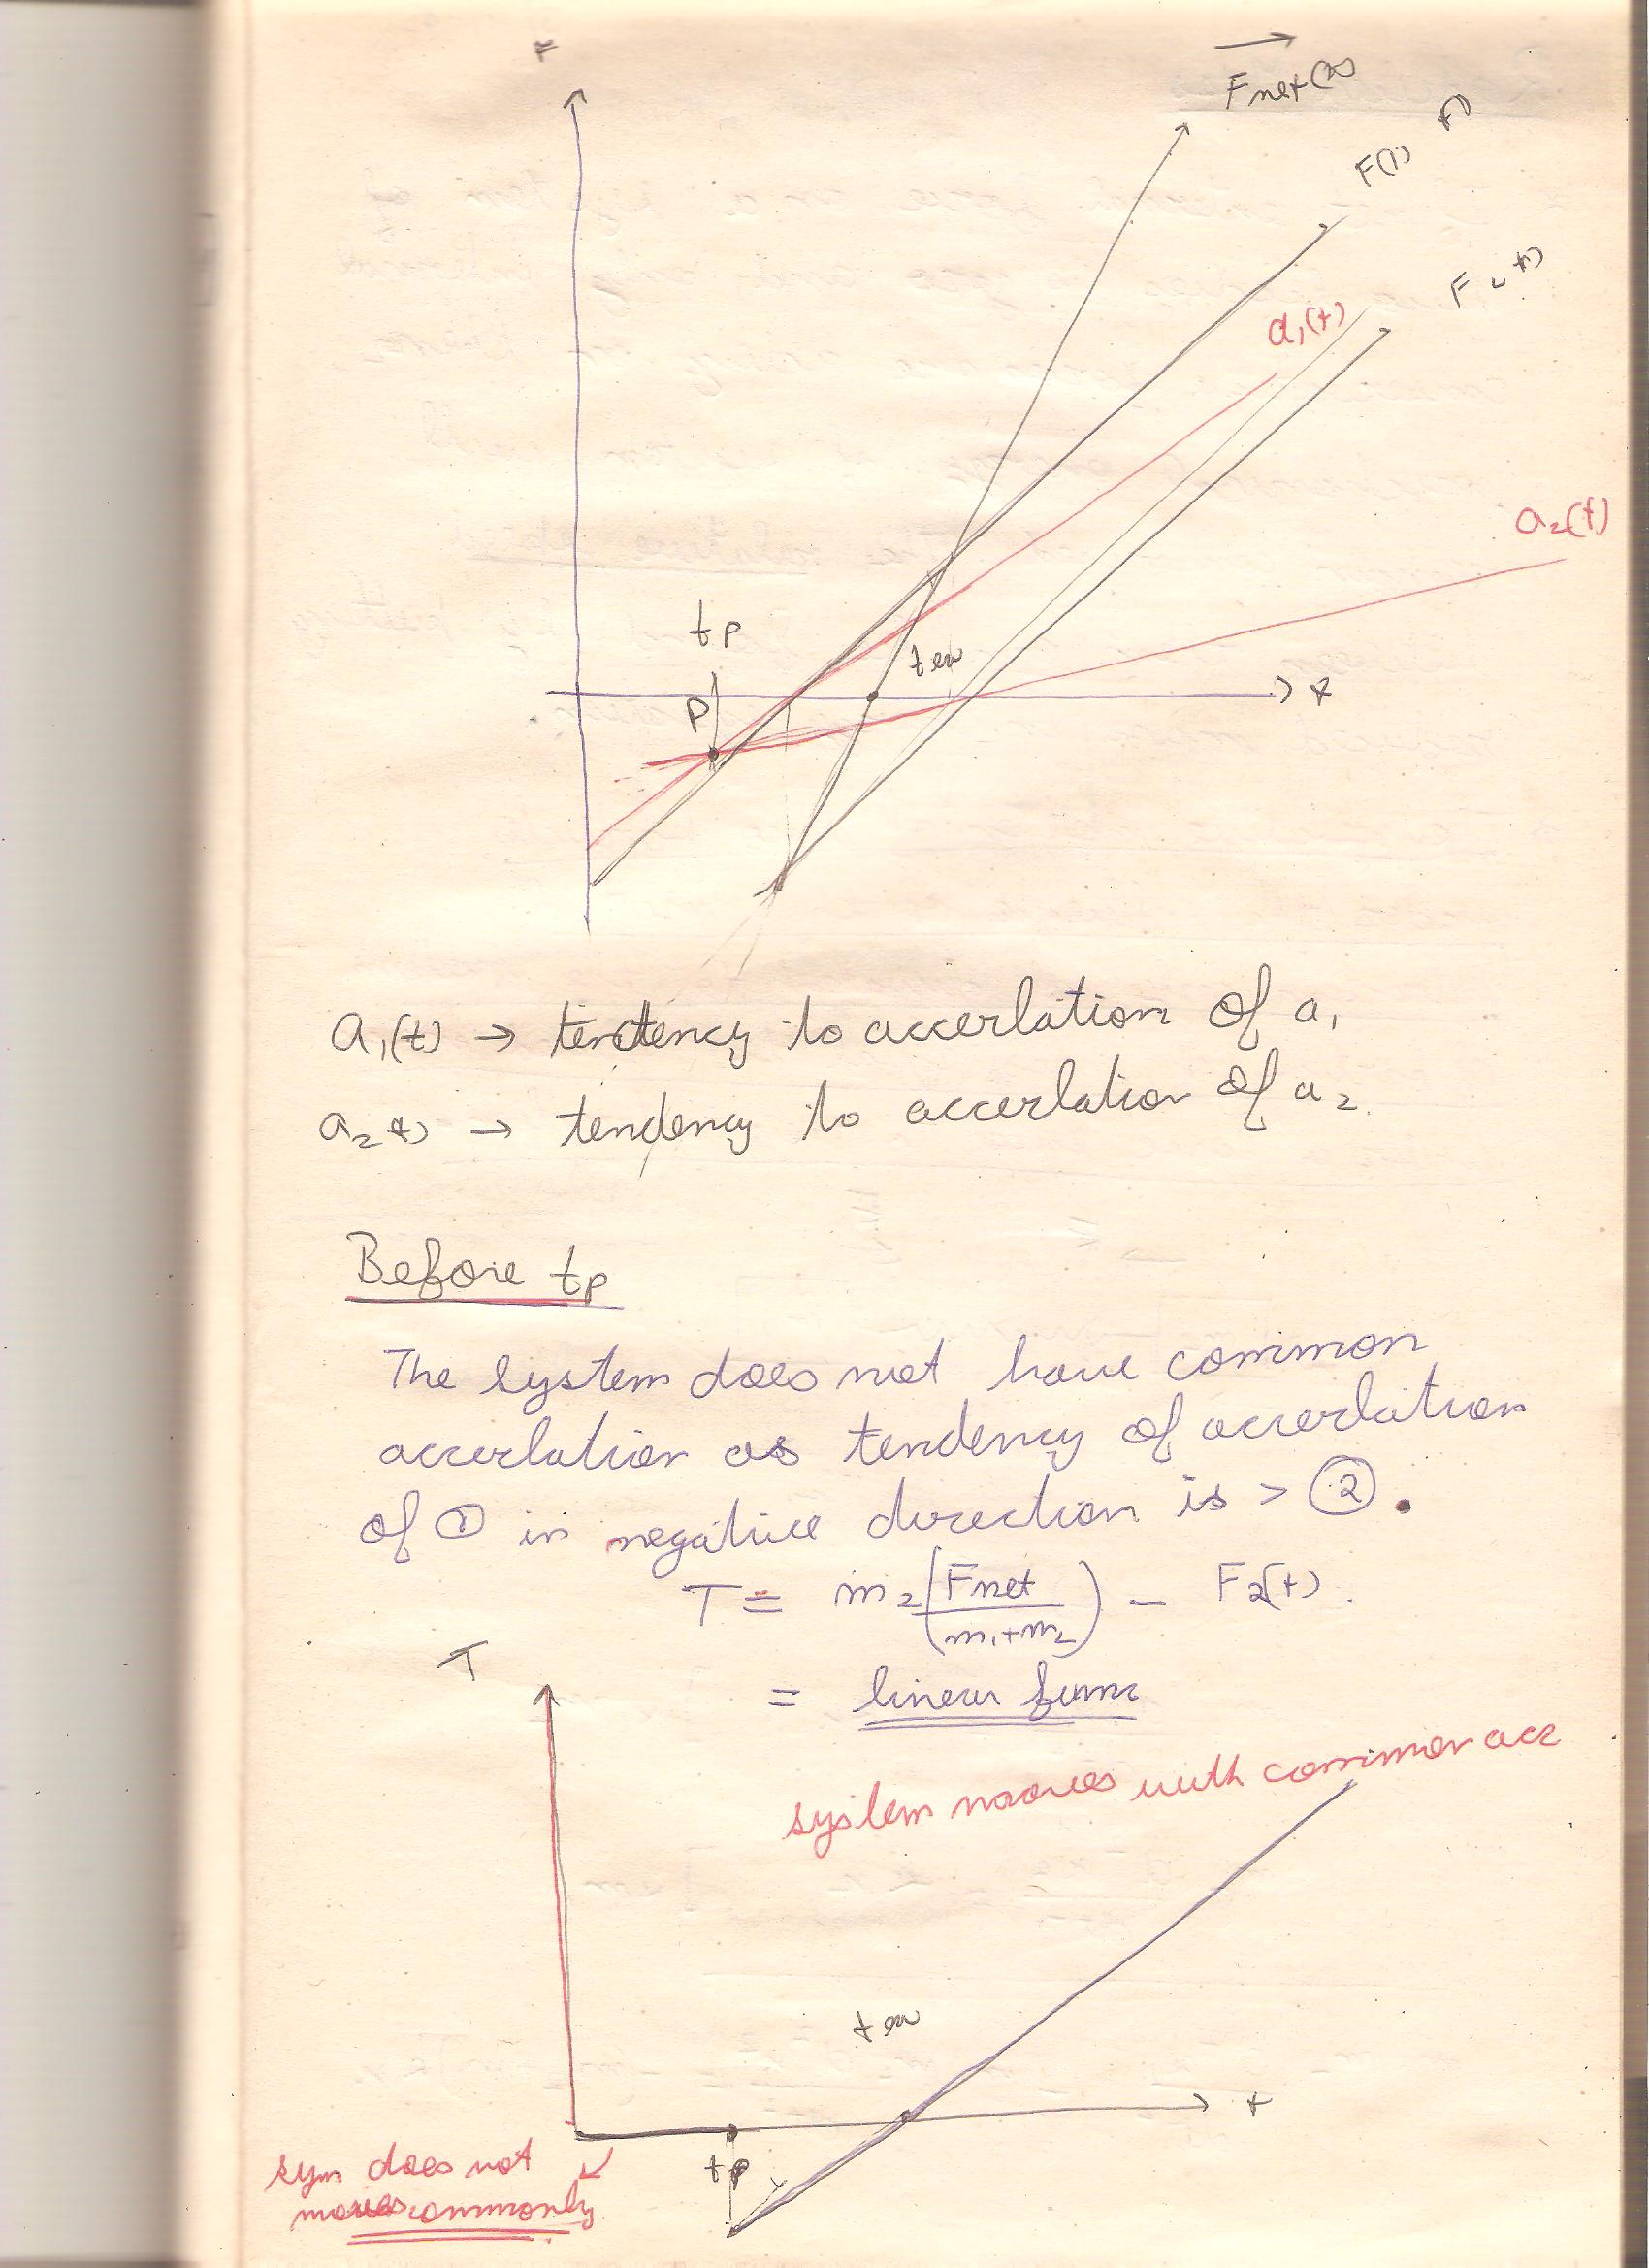 F
Fnet(t)
F(1) t)
F2(t)
a1(t)
a2(t)
tp
P
t
a1(t) → tendency to accerlation of a1
a2(t) → tendency to accerlation of a2
Before tp
The system does not have common
accerlation as tendency of accerlation
of ① in negative direction is > ②.
T = m2(Fnet/m1+m2) - F2(t).
= linear func
T
system moves with common acc
t
tp
sym does not
moves commonly